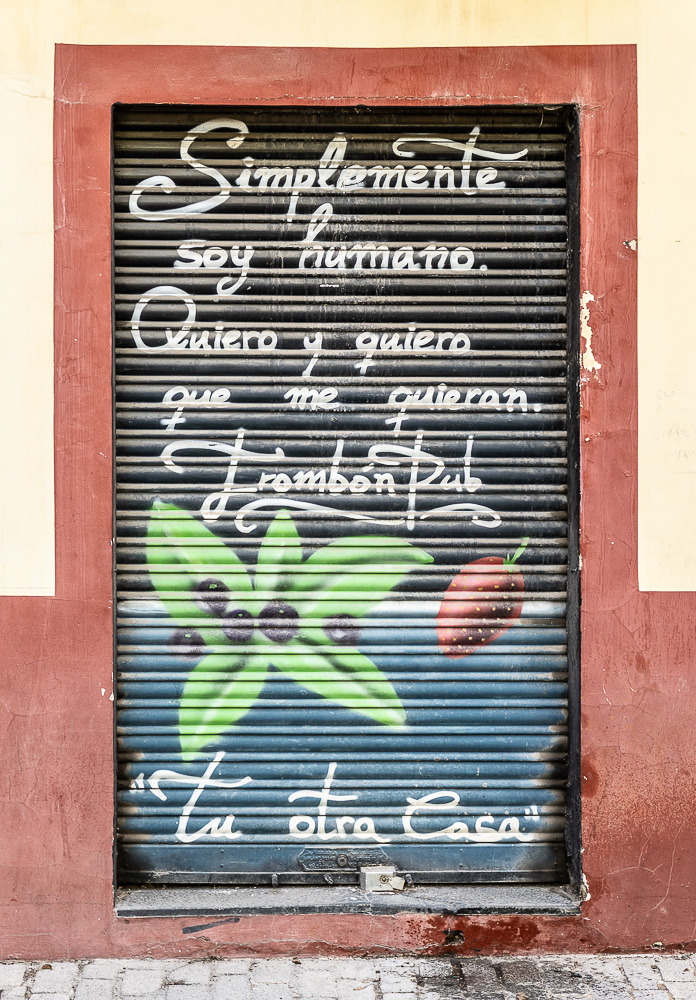 Simplemente
soy humano.
Quiero y quiero
que me quieran.
Trombón Pub
"tu otra Casa"